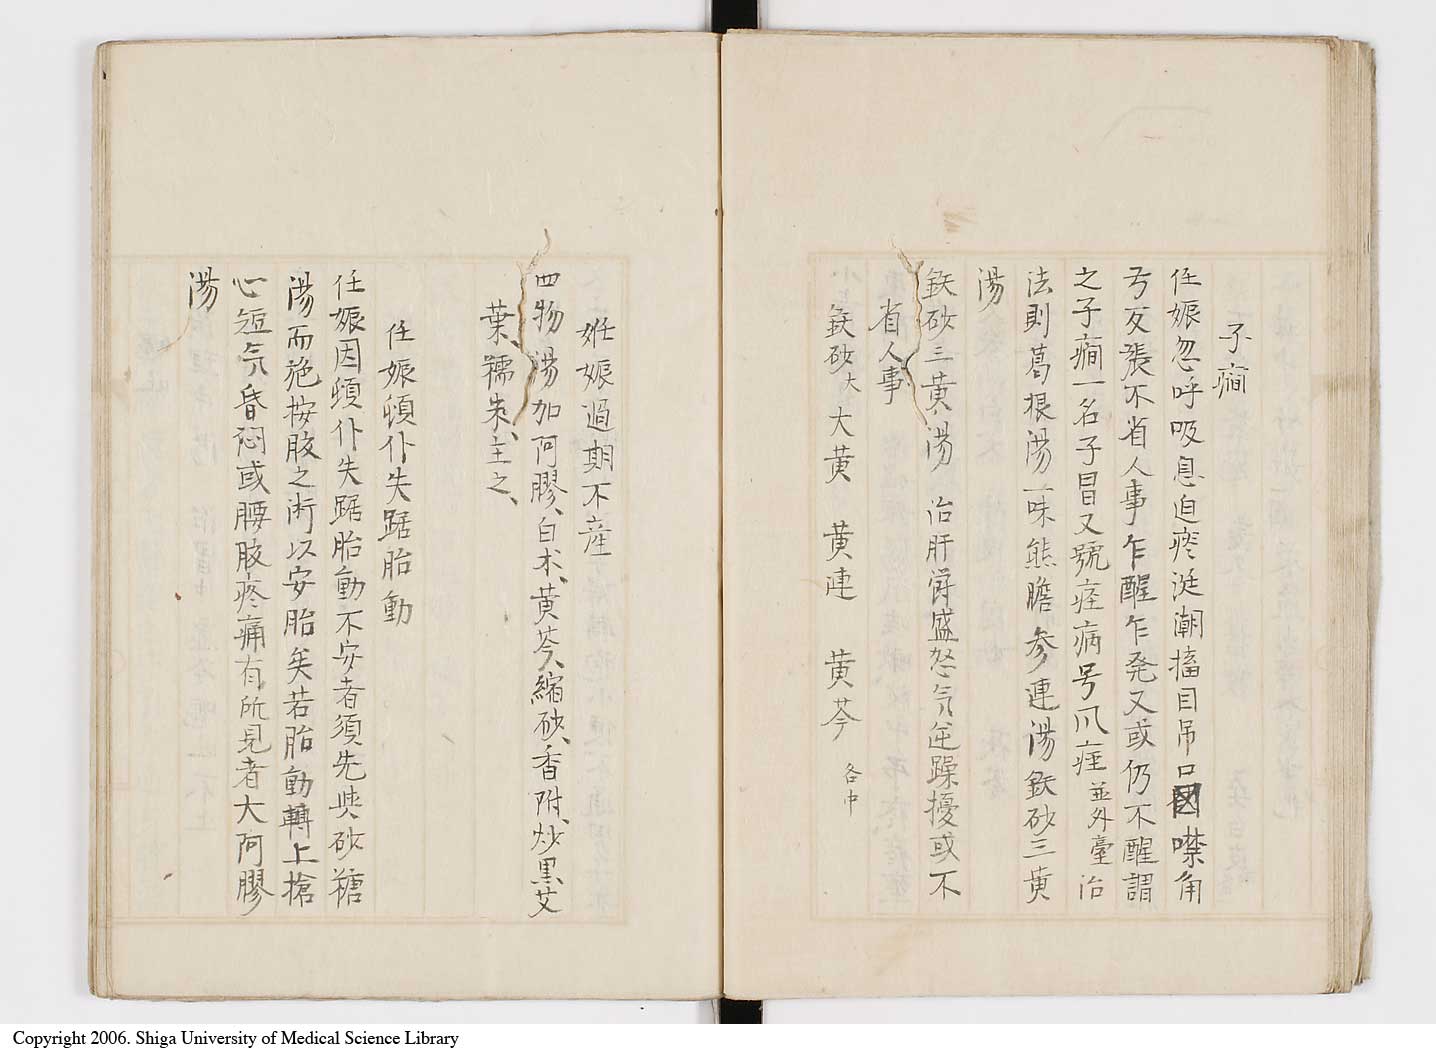 子癇
任娠忽呼吸息迫痰涎潮搐目吊口噤角
弓反張不省人事乍醒乍発又或仍不醒謂
之子癇一名子冒又號痓病号爪痓並外臺治
法則葛根湯一味熊膽参連湯鉄砂三黄
湯
鉄砂三黄湯 治肝欝盛怒气逆躁擾或不
省人事
鉄砂大 大黄 黄連 黄芩各中
姙娠過期不産
四物湯加阿膠、白朮、黄芩、縮砂、香附、炒黒艾
葉、糯米、主之、
任娠頓仆失踞胎動
任娠因頓仆失踞胎動不安者須先與砂糖
湯而施按腹之術以安胎矣若胎動轉上搶
心短气昏悶或腰腹疼痛有所見者大阿膠
湯
Copyright 2006. Shiga University of Medical Science Library